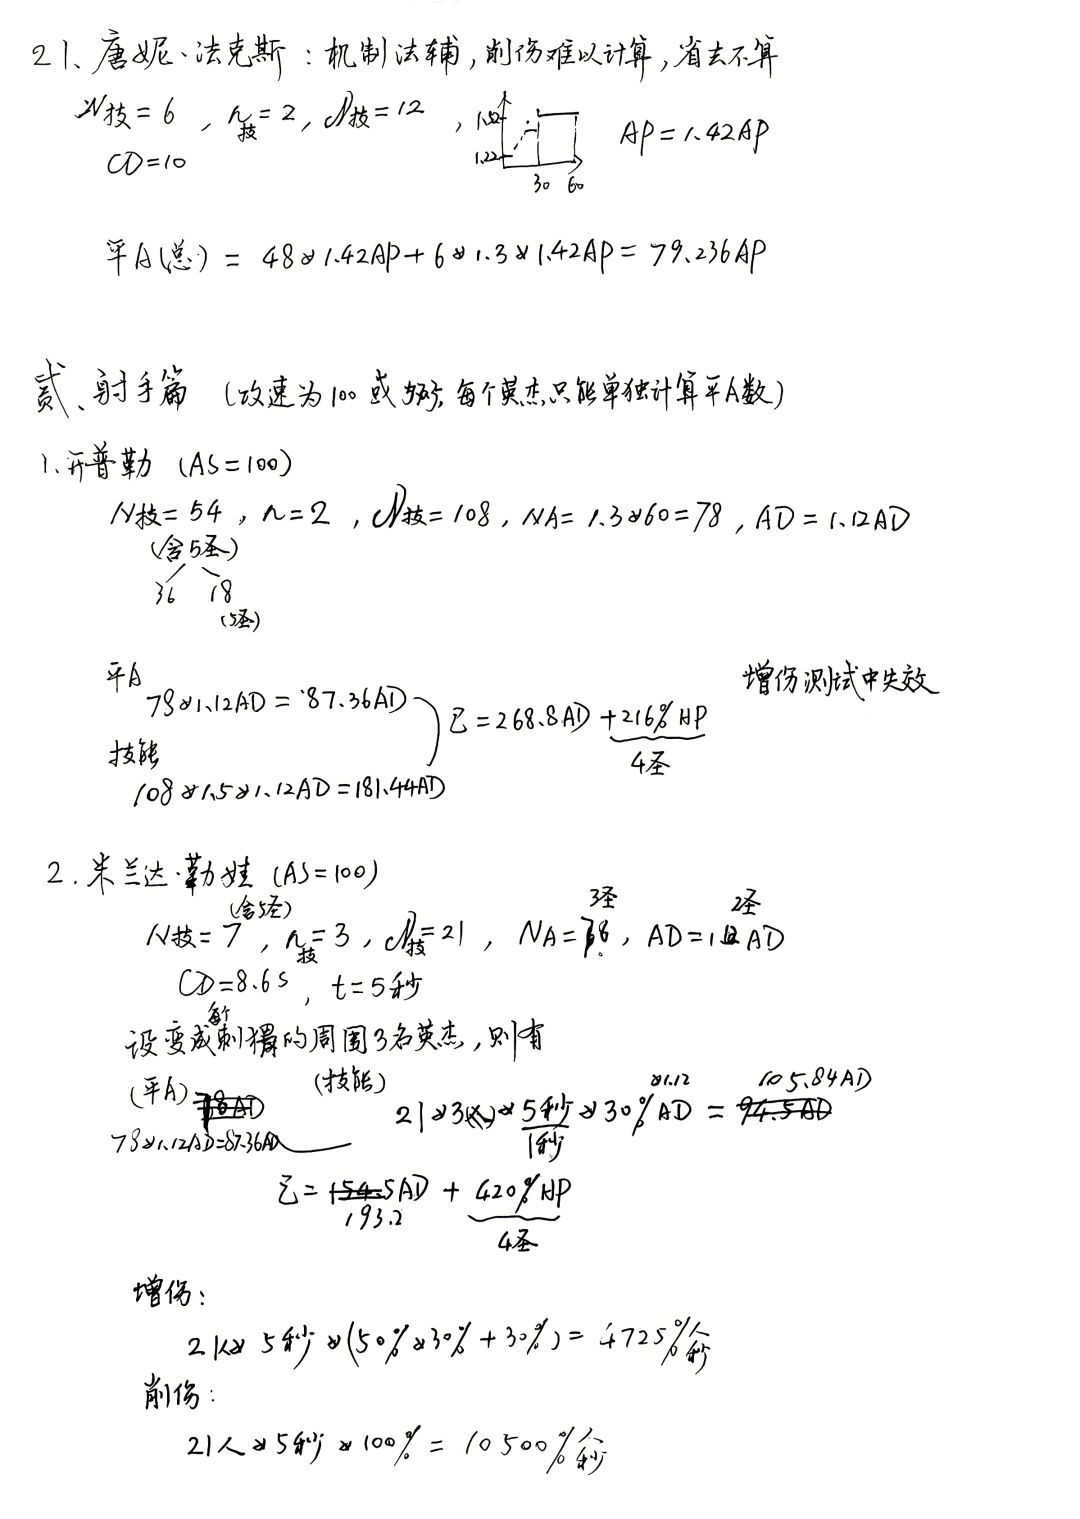 21、唐妮·法克斯：机制法辅，削伤难以计算，省去不算
N技=6，n技=2，N技=12，
1.52
1.22
30 60
AP=1.42AP
CD=10
平A(总)=48×1.42AP+6×1.3×1.42AP=79.236AP
贰、射手篇（攻速为100或，每个英杰只能单独计算平A数）
1.开普勒（AS=100）
N技=54，n=2，N技=108，NA=1.3×60=78，AD=1.12AD
（含5圣）
36 18
（5圣）
平A
78×1.12AD=87.36AD
技能
108×1.5×1.12AD=181.44AD
己=268.8AD+216%HP
4圣
增伤测试中失效
2.米兰达·勒娃（AS=100）
（含5圣） 3圣 2圣
N技=7，n技=3，N技=21，NA=78，AD=1.12AD
CD=8.6s，t=5秒
每个
设变成刺猬的周围3名英杰，则有
（平A）78AD
78×1.12AD=87.36AD
（技能）
×1.12 105.84AD
21×3(人)×5秒/1秒×30%AD=94.5AD
己=154.5AD+420%HP
193.2
4圣
增伤：
21人×5秒×(50%×30%+30%)=4725%人/秒
削伤：
21人×5秒×100%=10500%人/秒